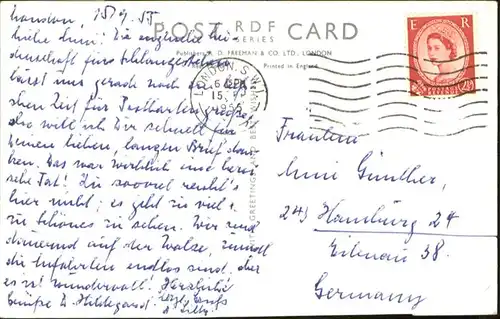 POST RDF CARD
SERIES
Publishers: R. D. FREEMAN & CO. LTD., LONDON
Printed in England
E R
LONDON. S.W.
6 PM
15. SEP
1955
GREETINGS
London, 15/9.55
liebe Inni! Die englische Lei-
denschaft für Schlangestehen
lässt uns gerade noch
Zeit für Postkarten
also will ich Dir schnell für
Deinen lieben, langen Brief dan-
ken. Das war wirklich eine
Tat! Zu soooviel reicht's
hier nicht; es gibt zu viel
zu Schönes zu sehen. Wir sind
dauernd auf der Walze, zumal
die Anfahrten endlos sind, aber
es ist wundervoll! Herzliche
Hildegard.
Fräulein
Inni Günther,
24) Hamburg 24
Eilenau 38.
Germany